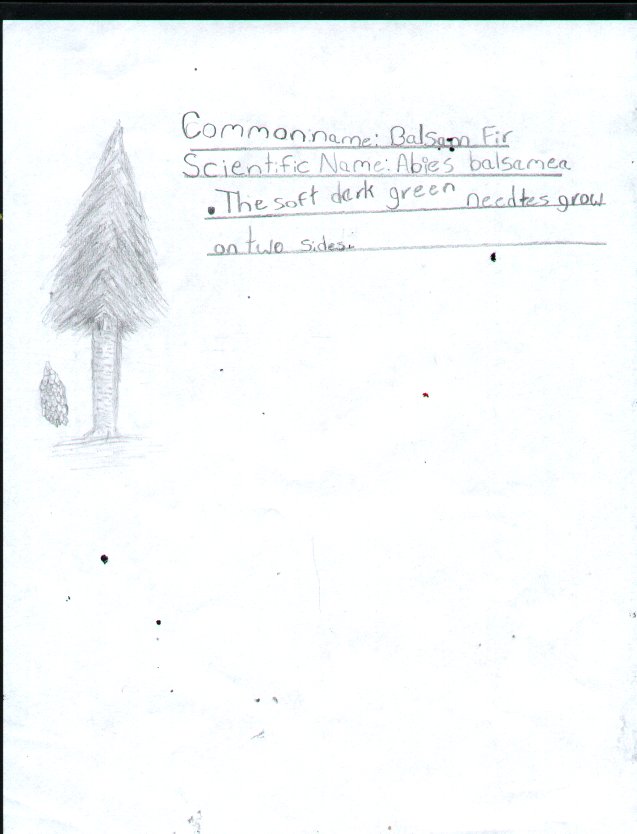 Common name: Balsam Fir
Scientific Name: Abies balsamea
• The soft dark green needles grow
on two sides.